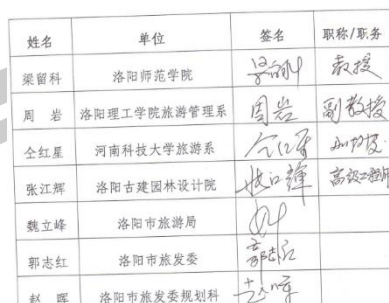 姓名 单位 签名 职称/职务
梁留科 洛阳师范学院 梁留科 教授
周 岩 洛阳理工学院旅游管理系 周岩 副教授
仝红星 河南科技大学旅游系 仝红星 副教授
张江辉 洛阳古建园林设计院 高级工程师
魏立峰 洛阳市旅游局
郭志红 洛阳市旅发委 郭志红
赵 晖 洛阳市旅发委规划科